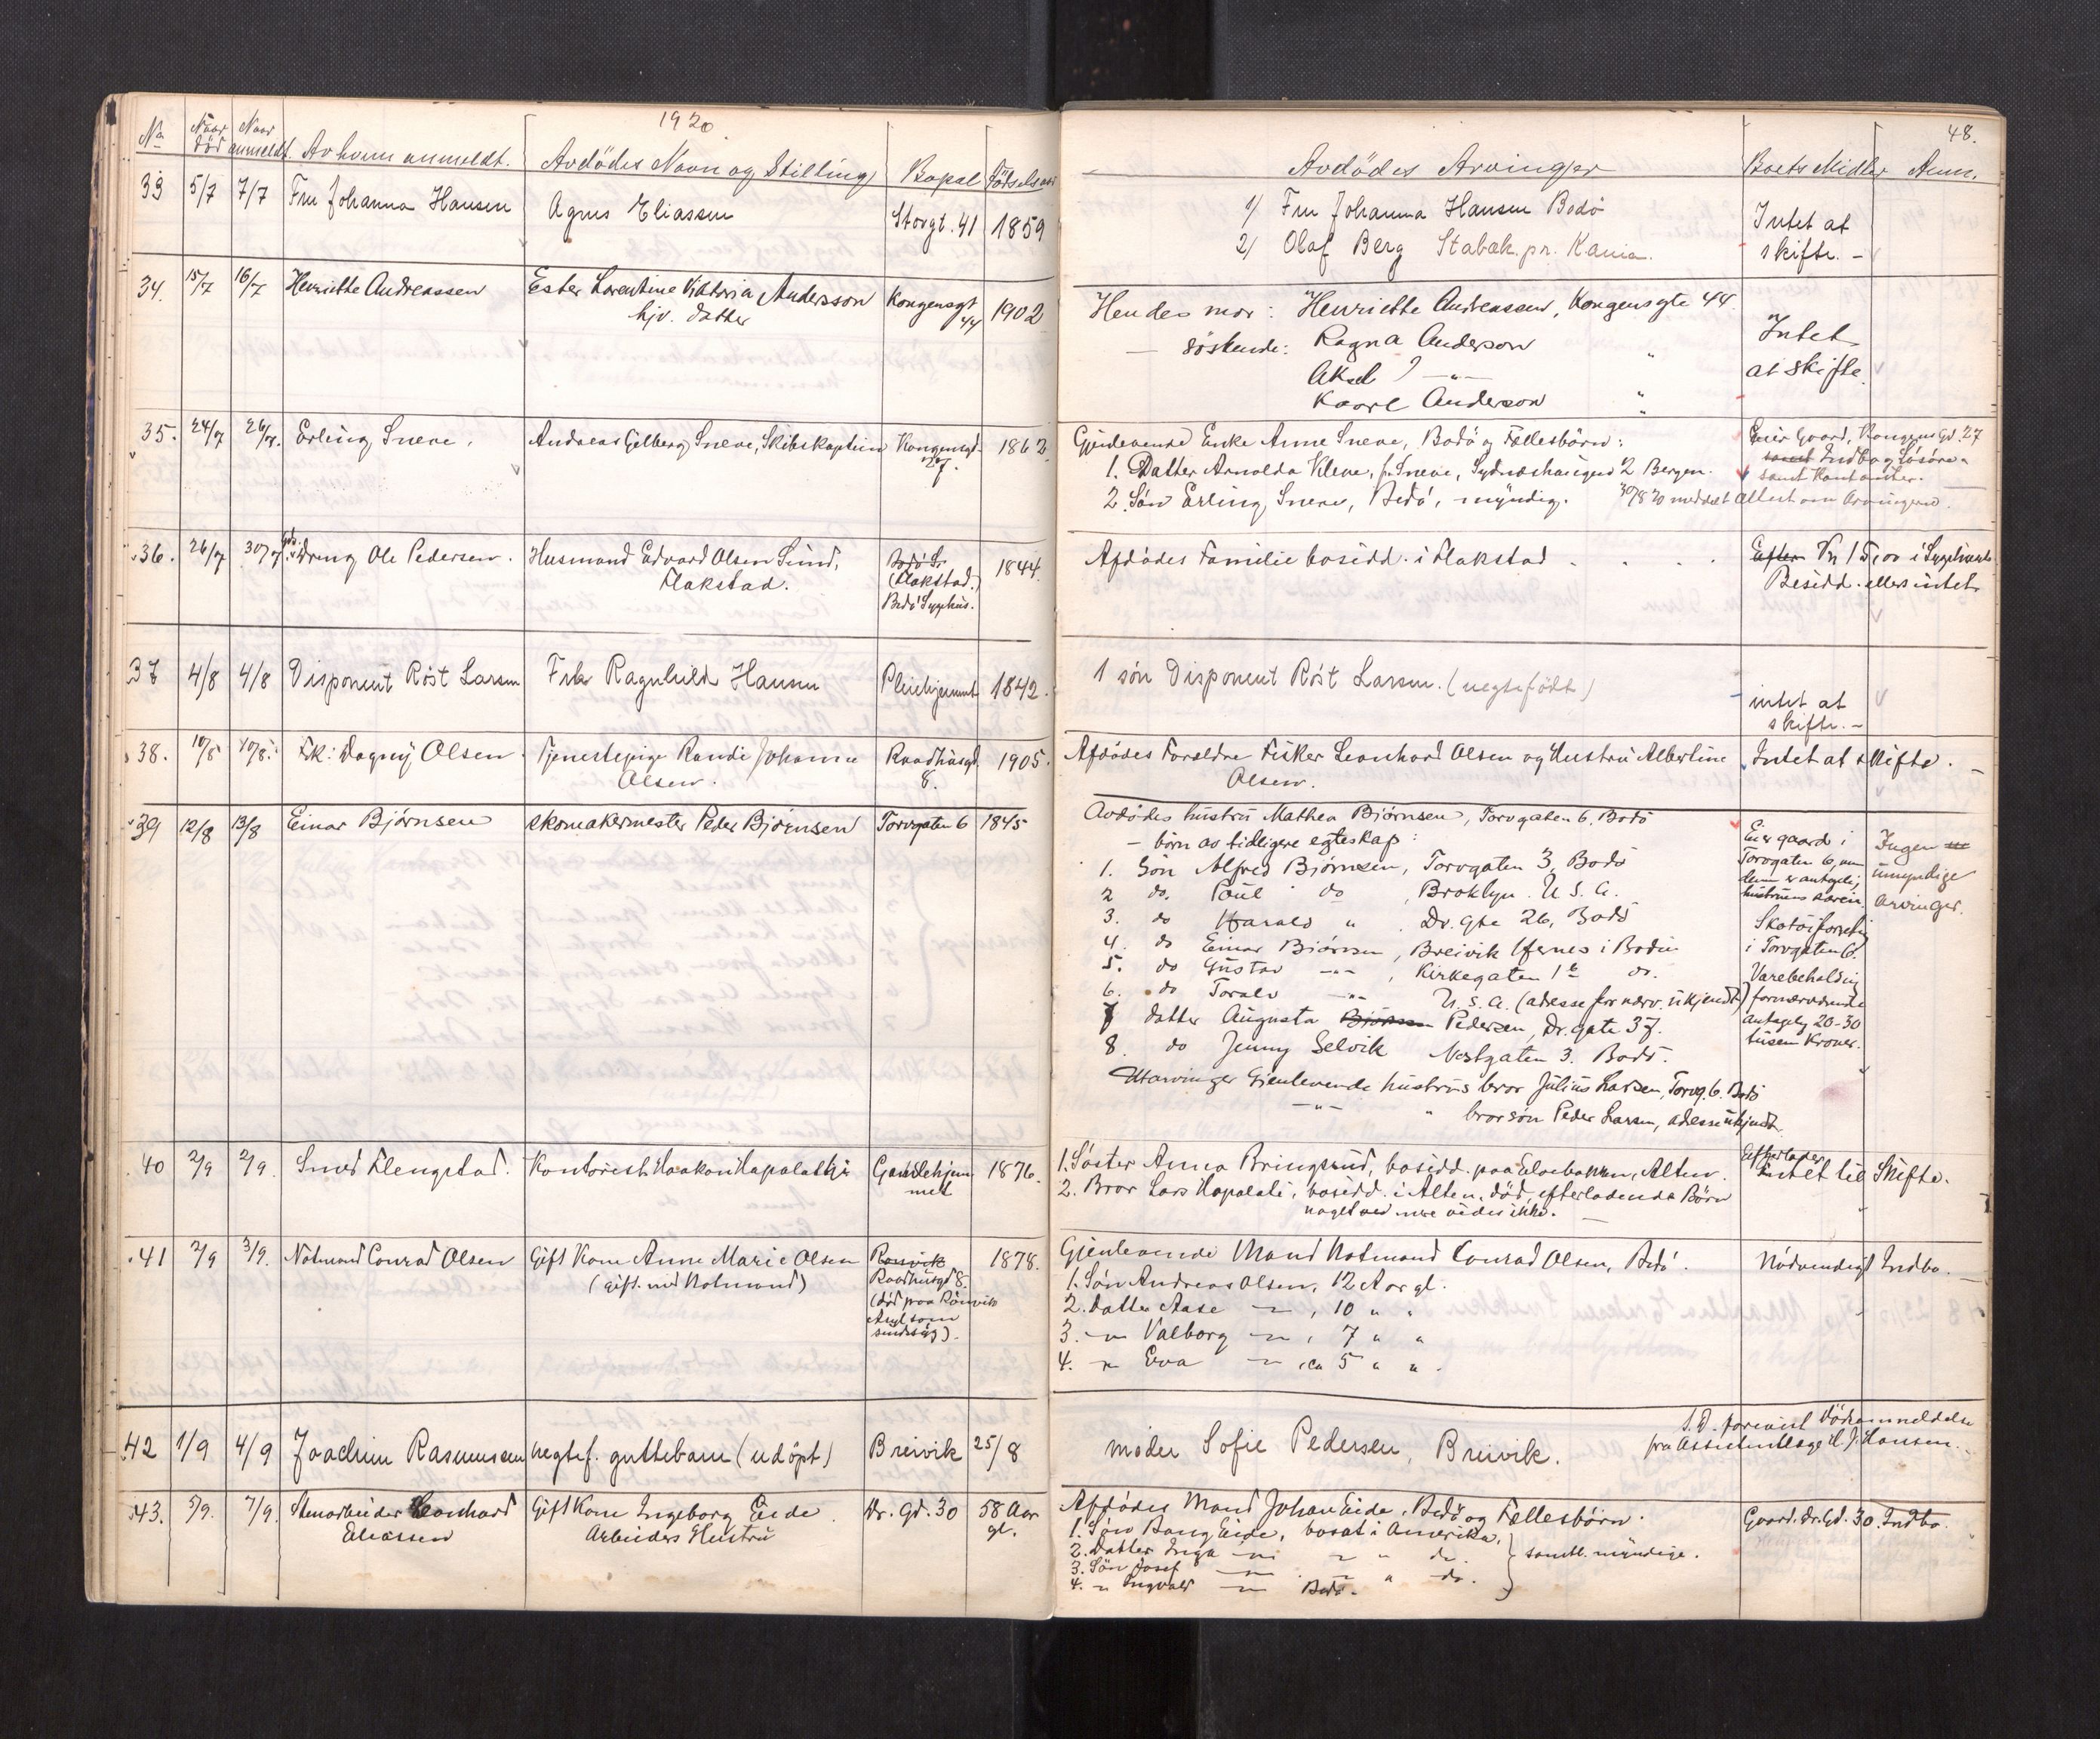 1920
No Naar död Naar anmeldt. Av hvem anmeldt. Avdödes Navn og Stilling Bopæl Födselsaar
33 5/7 7/7 Fru Johanna Hansen Agnes Eliassen Storgt. 41 1859
34. 15/7 16/7 Henriette Andreassen Ester Lorentine Viktoria Andersson Kongensgt 44 1902
hjv. datter
35. 24/7 26/7. Erling Sneve. Andreas Gilberg Sneve, Skibskaptein Kongensgd. 27. 1862.
36. 26/7 30/7 Dreng Ole Pedersen. Husmand Edvard Olsen Sund, 1844.
Flakstad. (Flakstad.)
Bodö Sygehus.
37 4/8 4/8 Disponent Röst Larsen Frk Ragnhild Hansen Pleiehjemmet 1842.
38. 10/8 10/8. Frk: Dagny Olsen. Tjenestepige Randi Johanne Raadhusgd 1905.
Olsen. 8.
39 12/8 13/8 Einar Bjørnsen Skomakermester Peder Bjørnsen Torvgaten 6 1845
40 2/9 2/9. Smed Flengstad. Kontorist Haakon Hapalathi Gamlehjem 1876.
met
41 2/9 3/9. Notmand Conrad Olsen Gift Kone Anne Marie Olsen Rønvik 1878.
(gift. med Notmand) Raadhusgd 8.
(död paa Rönvik
Asyl som
sindssyg).
42 1/9 4/9 Joachim Rasmussen uegtef. guttebarn (udöpt) Breivik 25/8
43. 5/9. 7/9. Stenarbeider Leonhard Gift Kone Ingeborg Eide. Dr. Gd. 30 58 Aar
Eliassen Arbeiders Hustru gl.
48.
Avdödes Arvinger Boets Midler Anm.
1/ Fru Johanna Hansen Bodö Intet at
2/ Olaf Berg Stabæk pr. Kania. skifte. -
Hendes mor: Henriette Andreassen, Kongensgte 44.
— söskende: Ragna Anderson " Intet
Aksel —"— at skifte.
Kaarl Anderson "
Gjenlevende Enke Anne Sneve, Bodö og Fellesbörn: Eier Gaard, Kongens Gd. 27
1. Datter Arnolda Kleve, f. Sneve, Sydneshaugen 2 Bergen. samt Indbo og Lösöre
samt Kontanter.
2. Sön Erling Sneve, Bodö, myndig. 30/8 20 meddelt attest om Arvingerne.
Afdödes Familie bosidd. i Flakstad . . . . Efter Kr 15,00 i Sygehusets
Besidd. ellers intet
1 sön Disponent Röst Larsen. (uegtefödt) intet at
skifte. -
Afdödes Foreldre Fisker Leonhard Olsen og Hustru Albertine Intet at skifte.
Olsen.
Avdödes hustru Mathea Bjørnsen, Torvgaten 6, Bodö
— börn av tidligere egteskap:
1. Sön Alfred Bjørnsen, Torvgaten 3, Bodö
2 do. Paul do , Broklyn. U. S. A.
3. do Harald " . Dr. Gte 26, Bodö
4. do Einar Bjørnsen, Breivik Hernes i Bodin
5. do Gustav —"—, Kirkegaten 1 b do.
6. do Toralv —"— U. S. A. (adresse for nærv. ukjendt)
7 datter Augusta Bjørnsen Pedersen, Dr. gate 37.
8. do Jenny Selvik Vestgaten 3. Bodö.
Utarvinger Gjenlevende hustrus bror Julius Larsen, Torvg. 6. Bodö
—"— " brorsön Peder Larsen, adresse ukjendt
Eier gaard i
Torvgaten 6, men
den er antagelig
hustruens særeie.
Skotöiforretn
i Torvgaten 6.
Varebeholdning
fornærværende
antagelig 20-30
tusen Kroner.
Ingen
umyndige
arvinger.
1. Söster Anna Bringsrud, bosidd. paa Elvebakken, Alten. Efterlader
Intet til Skifte.
2. Bror Lars Hapalati, bosidd. i Alten. död, efterladende Börn
noget ved mere vides ikke.
Gjenlevende Mand Notmand Conrad Olsen, Bodö. Nödvendigt Indbo.
1. Sön Andreas Olsen, 12 Aar gl.
2. Datter Aase — " —, 10 " "
3. — " Valborg — " —, 7 " "
4. — " Eva — " —, ca 5 " ".
moder Sofie Pedersen, Breivik.
S.D. forevist Dödsanmeldelse
fra Assistentlæge H. J. Hansen.
Afdödes Mand Johan Eide, Bodö og Fellesbörn. Gaard. Dr. Gd. 30. Indbo.
1. Sön Bang Eide, bosat i Amerika,
2. Datter Inga — " — " " do. } samtl. myndige.
3. Sön Josef — " — " " do.
4. — " Ingvald — " — Bodö.